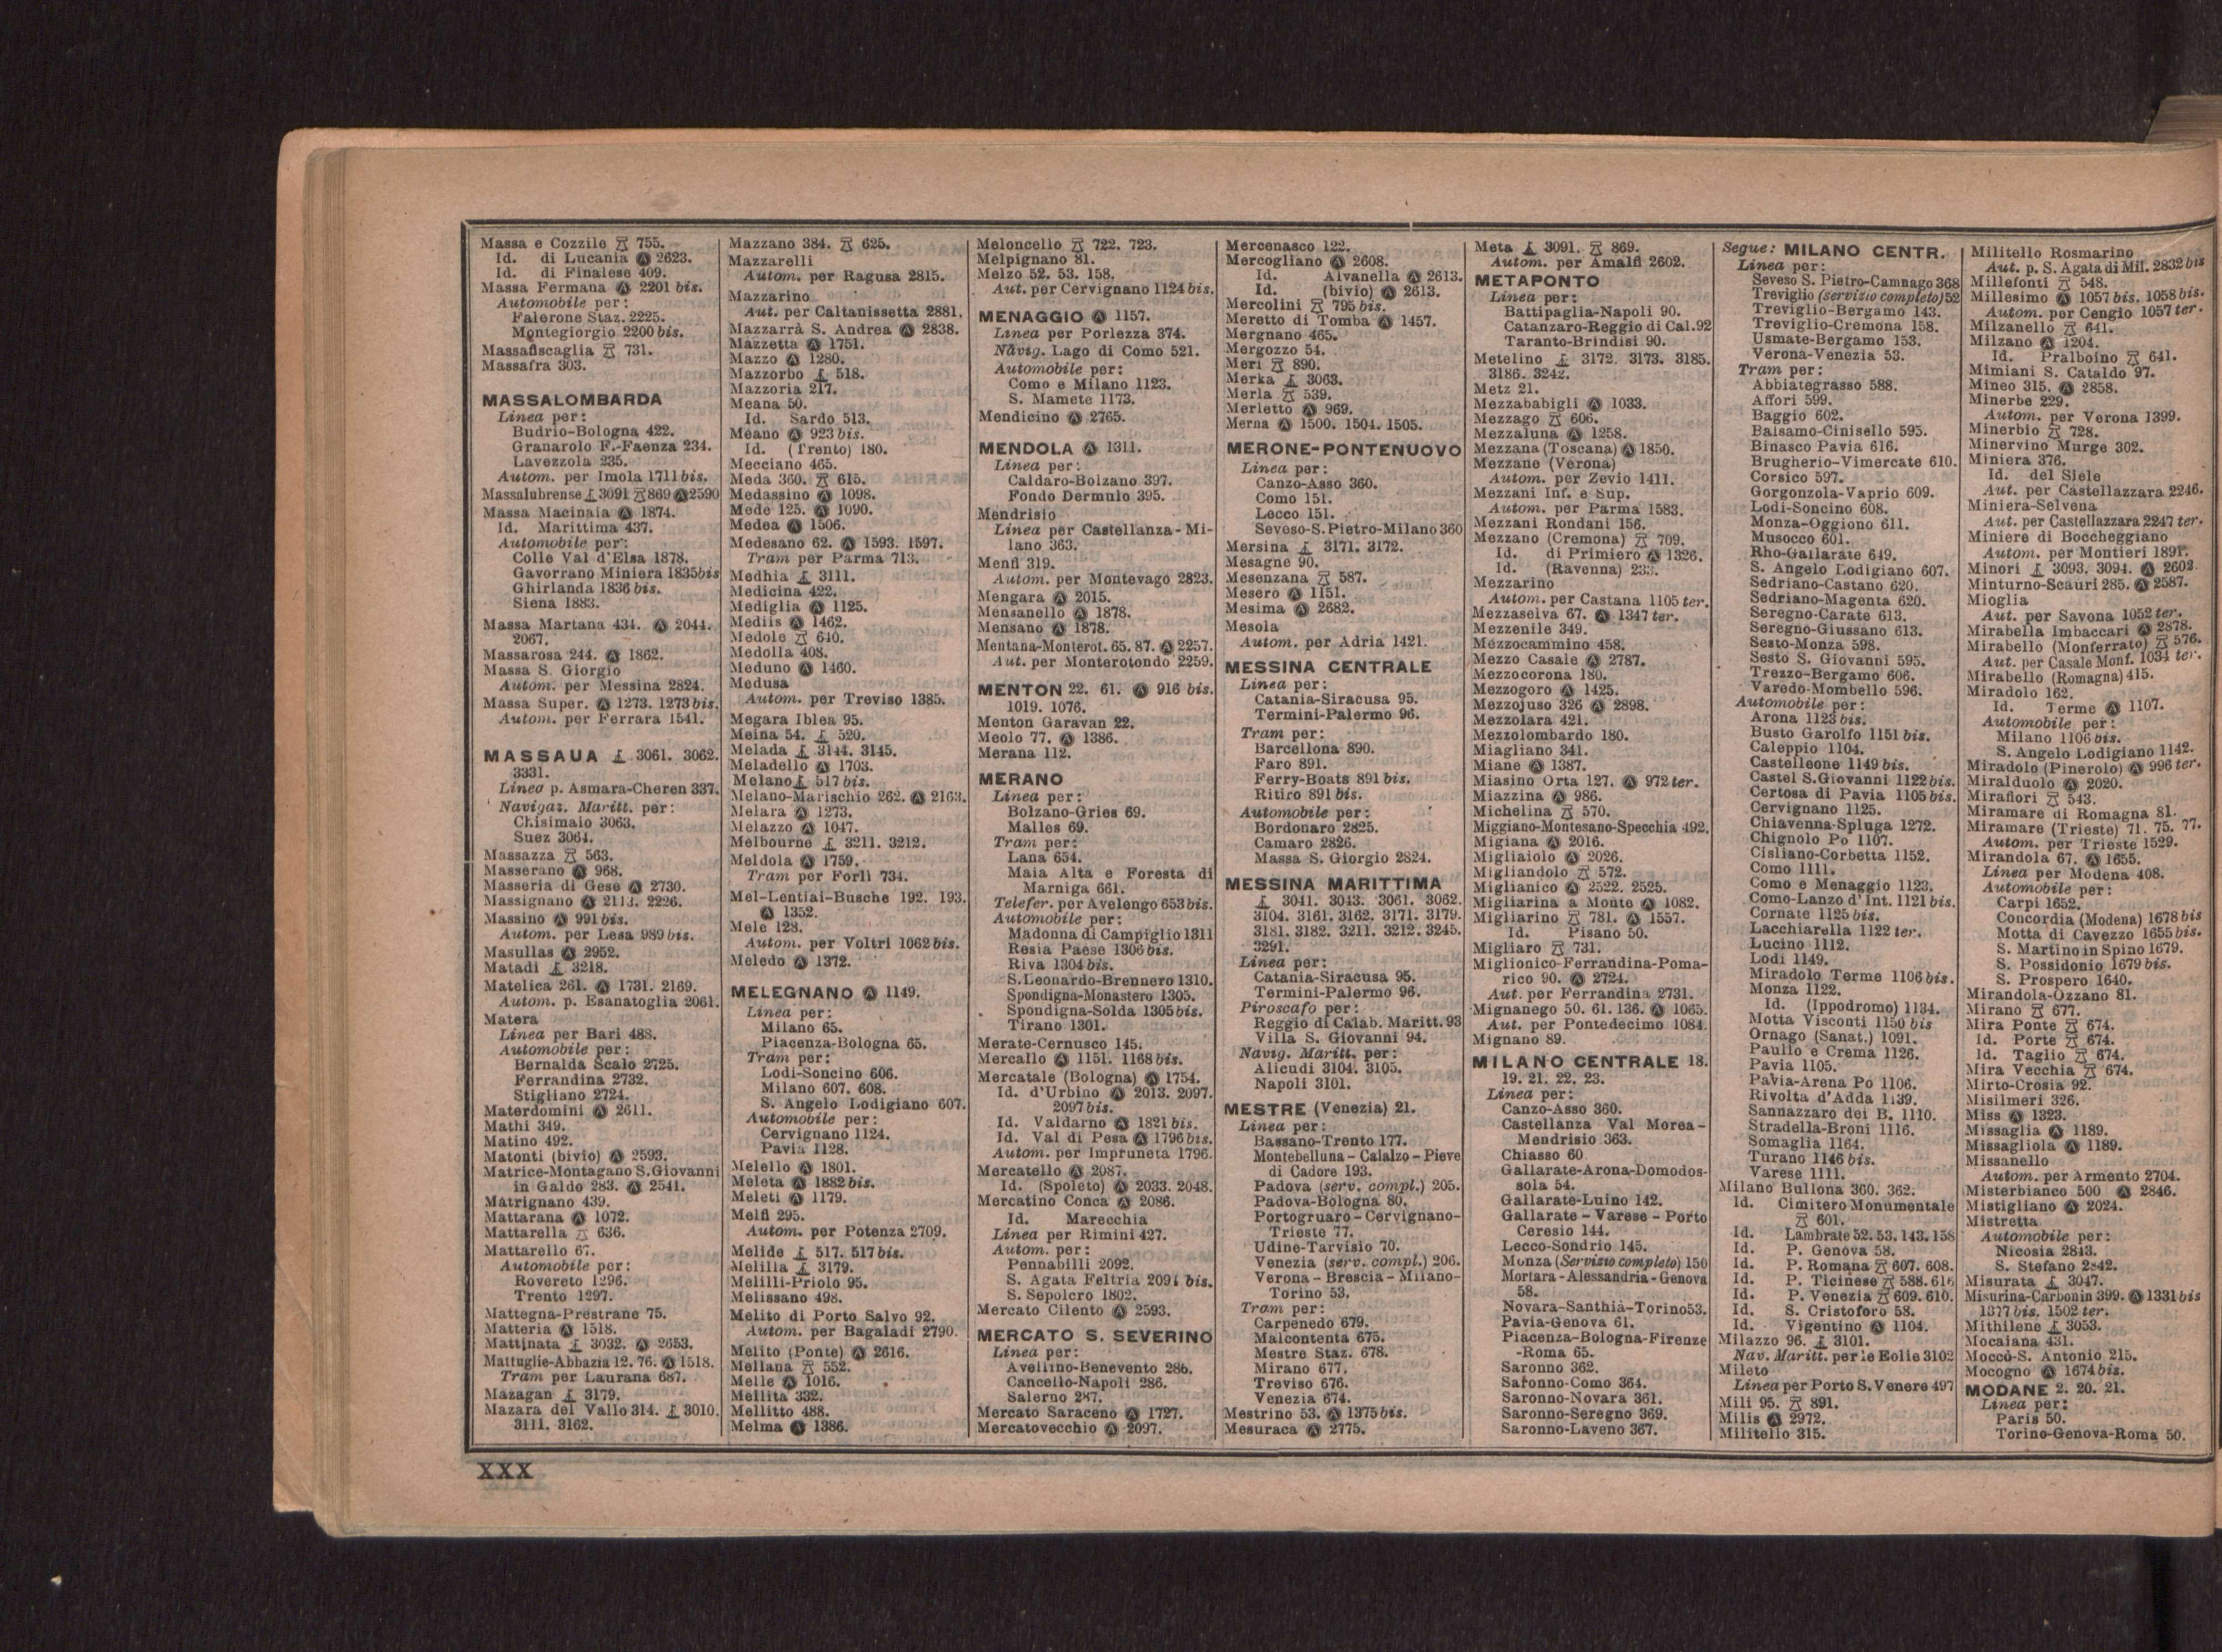 Massa e Cozzile 755.
Id. di Lucania Ⓐ 2623.
Id. di Finalese 409.
Massa Fermana Ⓐ 2201 bis.
Automobile per:
Falerone Staz. 2225.
Montegiorgio 2200 bis.
Massafiscaglia 731.
Massafra 303.
MASSALOMBARDA
Linea per:
Budrio-Bologna 422.
Granarolo F.-Faenza 234.
Lavezzola 235.
Autom. per Imola 1711 bis.
Massalubrense 3091 869 Ⓐ 2590
Massa Macinaia Ⓐ 1874.
Id. Marittima 437.
Automobile per:
Colle Val d'Elsa 1878.
Gavorrano Miniera 1835 bis
Ghirlanda 1836 bis.
Siena 1883.
Massa Martana 434. Ⓐ 2044.
2067.
Massarosa 244. Ⓐ 1862.
Massa S. Giorgio
Autom. per Messina 2824.
Massa Super. Ⓐ 1273. 1273 bis.
Autom. per Ferrara 1541.
MASSAUA 3061. 3062.
3331.
Linea p. Asmara-Cheren 337.
Navigaz. Maritt. per:
Chisimaio 3063.
Suez 3064.
Massazza 563.
Masserano Ⓐ 968.
Masseria di Gese Ⓐ 2730.
Massignano Ⓐ 2113. 2226.
Massino Ⓐ 991 bis.
Autom. per Lesa 989 bis.
Masullas Ⓐ 2952.
Matadi 3218.
Matelica 261. Ⓐ 1731. 2169.
Autom. p. Esanatoglia 2061.
Matera
Linea per Bari 488.
Automobile per:
Bernalda Scalo 2725.
Ferrandina 2732.
Stigliano 2724.
Materdomini Ⓐ 2611.
Mathi 349.
Matino 492.
Matonti (bivio) Ⓐ 2593.
Matrice-Montagano S. Giovanni
in Galdo 283. Ⓐ 2541.
Matrignano 439.
Mattarana Ⓐ 1072.
Mattarella 636.
Mattarello 67.
Automobile per:
Rovereto 1296.
Trento 1297.
Mattegna-Prestrane 75.
Matteria Ⓐ 1518.
Mattinata 3032. Ⓐ 2653.
Mattuglie-Abbazia 12. 76. Ⓐ 1518.
Tram per Laurana 687.
Mazagan 3179.
Mazara del Vallo 314. 3010.
3111. 3162.
Mazzano 384. 625.
Mazzarelli
Autom. per Ragusa 2815.
Mazzarino
Aut. per Caltanissetta 2881.
Mazzarrà S. Andrea Ⓐ 2838.
Mazzetta Ⓐ 1751.
Mazzo Ⓐ 1280.
Mazzorbo 518.
Mazzoria 217.
Meana 50.
Id. Sardo 513.
Meano Ⓐ 923 bis.
Id. (Trento) 180.
Mecciano 465.
Meda 360. 615.
Medassino Ⓐ 1098.
Mede 125. Ⓐ 1090.
Medea Ⓐ 1506.
Medesano 62. Ⓐ 1593. 1597.
Tram per Parma 713.
Medhia 3111.
Medicina 422.
Mediglia Ⓐ 1125.
Mediis Ⓐ 1462.
Medole 640.
Medolla 408.
Meduno Ⓐ 1460.
Medusa
Autom. per Treviso 1385.
Megara Iblea 95.
Meina 54. 520.
Melada 3144. 3145.
Meladello Ⓐ 1703.
Melano 517 bis.
Melano-Marischio 262. Ⓐ 2163.
Melara Ⓐ 1273.
Melazzo Ⓐ 1047.
Melbourne 3211. 3212.
Meldola Ⓐ 1759.
Tram per Forlì 734.
Mel-Lentiai-Busche 192. 193.
Ⓐ 1352.
Mele 128.
Autom. per Voltri 1062 bis.
Meledo Ⓐ 1372.
MELEGNANO Ⓐ 1149.
Linea per:
Milano 65.
Piacenza-Bologna 65.
Tram per:
Lodi-Soncino 606.
Milano 607. 608.
S. Angelo Lodigiano 607.
Automobile per:
Cervignano 1124.
Pavia 1128.
Melello Ⓐ 1801.
Meleta Ⓐ 1882 bis.
Meleti Ⓐ 1179.
Melfi 295.
Autom. per Potenza 2709.
Melide 517. 517 bis.
Melilla 3179.
Melilli-Priolo 95.
Melissano 498.
Melito di Porto Salvo 92.
Autom. per Bagaladi 2790.
Melito (Ponte) Ⓐ 2616.
Mellana 552.
Melle Ⓐ 1016.
Mellita 332.
Mellitto 488.
Melma Ⓐ 1386.
Meloncello 722. 723.
Melpignano 81.
Melzo 52. 53. 158.
Aut. per Cervignano 1124 bis.
MENAGGIO Ⓐ 1157.
Linea per Porlezza 374.
Navig. Lago di Como 521.
Automobile per:
Como e Milano 1123.
S. Mamete 1173.
Mendicino Ⓐ 2765.
MENDOLA Ⓐ 1311.
Linea per:
Caldaro-Bolzano 397.
Fondo Dermulo 395.
Mendrisio
Linea per Castellanza-Mi-
lano 363.
Menfi 319.
Autom. per Montevago 2823.
Mengara Ⓐ 2015.
Mensanello Ⓐ 1878.
Mensano Ⓐ 1878.
Mentana-Monterot. 65. 87. Ⓐ 2257.
Aut. per Monterotondo 2259.
MENTON 22. 61. Ⓐ 916 bis.
1019. 1076.
Menton Garavan 22.
Meolo 77. Ⓐ 1386.
Merana 112.
MERANO
Linea per:
Bolzano-Gries 69.
Malles 69.
Tram per:
Lana 654.
Maia Alta e Foresta di
Marniga 661.
Telefer. per Avelengo 653 bis.
Automobile per:
Madonna di Campiglio 1311
Resia Paese 1306 bis.
Riva 1304 bis.
S. Leonardo-Brennero 1310.
Spondigna-Monastero 1305.
Spondigna-Solda 1305 bis.
Tirano 1301.
Merate-Cernusco 145.
Mercallo Ⓐ 1151. 1168 bis.
Mercatale (Bologna) Ⓐ 1754.
Id. d'Urbino Ⓐ 2013. 2097.
2097 bis.
Id. Valdarno Ⓐ 1821 bis.
Id. Val di Pesa Ⓐ 1796 bis.
Autom. per Impruneta 1796.
Mercatello Ⓐ 2087.
Id. (Spoleto) Ⓐ 2033. 2048.
Mercatino Conca Ⓐ 2086.
Id. Marecchia
Linea per Rimini 427.
Autom. per:
Pennabilli 2092.
S. Agata Feltria 2091 bis.
S. Sepolcro 1802.
Mercato Cilento Ⓐ 2593.
MERCATO S. SEVERINO
Linea per:
Avellino-Benevento 286.
Cancello-Napoli 286.
Salerno 287.
Mercato Saraceno Ⓐ 1727.
Mercatovecchio Ⓐ 2097.
Mercenasco 122.
Mercogliano Ⓐ 2608.
Id. Alvanella Ⓐ 2613.
Id. (bivio) Ⓐ 2613.
Mercolini 795 bis.
Meretto di Tomba Ⓐ 1457.
Mergnano 465.
Mergozzo 54.
Merì 890.
Merka 3063.
Merla 539.
Merletto Ⓐ 969.
Merna Ⓐ 1500. 1504. 1505.
MERONE-PONTENUOVO
Linea per:
Canzo-Asso 360.
Como 151.
Lecco 151.
Seveso-S. Pietro-Milano 360
Mersina 3171. 3172.
Mesagne 90.
Mesenzana 587.
Mesero Ⓐ 1151.
Mesima Ⓐ 2682.
Mesola
Autom. per Adria 1421.
MESSINA CENTRALE
Linea per:
Catania-Siracusa 95.
Termini-Palermo 96.
Tram per:
Barcellona 890.
Faro 891.
Ferry-Boats 891 bis.
Ritiro 891 bis.
Automobile per:
Bordonaro 2825.
Camaro 2826.
Massa S. Giorgio 2824.
MESSINA MARITTIMA
3041. 3043. 3061. 3062.
3104. 3161. 3162. 3171. 3179.
3181. 3182. 3211. 3212. 3245.
3291.
Linea per:
Catania-Siracusa 95.
Termini-Palermo 96.
Piroscafo per:
Reggio di Calab. Maritt. 93
Villa S. Giovanni 94.
Navig. Maritt. per:
Alicudi 3104. 3105.
Napoli 3101.
MESTRE (Venezia) 21.
Linea per:
Bassano-Trento 177.
Montebelluna-Calalzo-Pieve
di Cadore 193.
Padova (serv. compl.) 205.
Padova-Bologna 80.
Portogruaro-Cervignano-
Trieste 77.
Udine-Tarvisio 70.
Venezia (serv. compl.) 206.
Verona-Brescia-Milano-
Torino 53.
Tram per:
Carpenedo 679.
Malcontenta 675.
Mestre Staz. 678.
Mirano 677.
Treviso 676.
Venezia 674.
Mestrino 53. Ⓐ 1375 bis.
Mesuraca Ⓐ 2775.
Meta 3091. 869.
Autom. per Amalfi 2602.
METAPONTO
Linea per:
Battipaglia-Napoli 90.
Catanzaro-Reggio di Cal. 92
Taranto-Brindisi 90.
Metelino 3172. 3173. 3185.
3186. 3242.
Metz 21.
Mezzababigli Ⓐ 1033.
Mezzago 606.
Mezzaluna Ⓐ 1258.
Mezzana (Toscana) Ⓐ 1850.
Mezzane (Verona)
Autom. per Zevio 1411.
Mezzani Inf. e Sup.
Autom. per Parma 1583.
Mezzani Rondani 156.
Mezzano (Cremona) 709.
Id. di Primiero Ⓐ 1326.
Id. (Ravenna) 233.
Mezzarino
Autom. per Castana 1105 ter.
Mezzaselva 67. Ⓐ 1347 ter.
Mezzenile 349.
Mezzocammino 458.
Mezzo Casale Ⓐ 2787.
Mezzocorona 180.
Mezzogoro Ⓐ 1425.
Mezzojuso 326 Ⓐ 2898.
Mezzolara 421.
Mezzolombardo 180.
Miagliano 341.
Miane Ⓐ 1387.
Miasino Orta 127. Ⓐ 972 ter.
Miazzina Ⓐ 986.
Michelina 570.
Miggiano-Montesano-Specchia 492.
Migiana Ⓐ 2016.
Migliaiolo Ⓐ 2026.
Migliandolo 572.
Miglianico Ⓐ 2522. 2525.
Migliarina a Monte Ⓐ 1082.
Migliarino 781. Ⓐ 1557.
Id. Pisano 50.
Migliaro 731.
Miglionico-Ferrandina-Poma-
rico 90. Ⓐ 2724.
Aut. per Ferrandina 2731.
Mignanego 50. 61. 136. Ⓐ 1065.
Aut. per Pontedecimo 1084.
Mignano 89.
MILANO CENTRALE 18.
19. 21. 22. 23.
Linea per:
Canzo-Asso 360.
Castellanza Val Morea-
Mendrisio 363.
Chiasso 60
Gallarate-Arona-Domodos-
sola 54.
Gallarate-Luino 142.
Gallarate-Varese-Porto
Ceresio 144.
Lecco-Sondrio 145.
Monza (Servizio completo) 150
Mortara-Alessandria-Genova
58.
Novara-Santhià-Torino 53.
Pavia-Genova 61.
Piacenza-Bologna-Firenze
-Roma 65.
Saronno 362.
Saronno-Como 364.
Saronno-Novara 361.
Saronno-Seregno 369.
Saronno-Laveno 367.
Segue: MILANO CENTR.
Linea per:
Seveso S. Pietro-Camnago 368
Treviglio (servizio completo) 52
Treviglio-Bergamo 143.
Treviglio-Cremona 158.
Usmate-Bergamo 153.
Verona-Venezia 53.
Tram per:
Abbiategrasso 588.
Affori 599.
Baggio 602.
Balsamo-Cinisello 595.
Binasco Pavia 616.
Brugherio-Vimercate 610.
Corsico 597.
Gorgonzola-Vaprio 609.
Lodi-Soncino 608.
Monza-Oggiono 611.
Musocco 601.
Rho-Gallarate 649.
S. Angelo Lodigiano 607.
Sedriano-Castano 620.
Sedriano-Magenta 620.
Seregno-Carate 613.
Seregno-Giussano 613.
Sesto-Monza 598.
Sesto S. Giovanni 595.
Trezzo-Bergamo 606.
Varedo-Mombello 596.
Automobile per:
Arona 1123 bis.
Busto Garolfo 1151 bis.
Caleppio 1104.
Castelleone 1149 bis.
Castel S. Giovanni 1122 bis.
Certosa di Pavia 1105 bis.
Cervignano 1125.
Chiavenna-Spluga 1272.
Chignolo Po 1107.
Cisliano-Corbetta 1152.
Como 1111.
Como e Menaggio 1123.
Como-Lanzo d'Int. 1121 bis.
Cornate 1125 bis.
Lacchiarella 1122 ter.
Lucino 1112.
Lodi 1149.
Miradolo Terme 1106 bis.
Monza 1122.
Id. (Ippodromo) 1134.
Motta Visconti 1150 bis
Ornago (Sanat.) 1091.
Paullo e Crema 1126.
Pavia 1105.
Pavia-Arena Po 1106.
Rivolta d'Adda 1139.
Sannazzaro dei B. 1110.
Stradella-Broni 1116.
Somaglia 1164.
Turano 1146 bis.
Varese 1111.
Milano Bullona 360. 362.
Id. Cimitero Monumentale
601.
Id. Lambrate 52. 53. 143. 158
Id. P. Genova 58.
Id. P. Romana 607. 608.
Id. P. Ticinese 588. 616
Id. P. Venezia 609. 610.
Id. S. Cristoforo 58.
Id. Vigentino Ⓐ 1104.
Milazzo 96. 3101.
Nav. Maritt. per le Eolie 3102
Mileto
Linea per Porto S. Venere 497
Mili 95. 891.
Milis Ⓐ 2972.
Militello 315.
Militello Rosmarino
Aut. p. S. Agata di Mil. 2832 bis
Millefonti 548.
Millesimo Ⓐ 1057 bis. 1058 bis.
Autom. per Cengio 1057 ter.
Milzanello 641.
Milzano Ⓐ 1204.
Id. Pralboino 641.
Mimiani S. Cataldo 97.
Mineo 315. Ⓐ 2858.
Minerbe 229.
Autom. per Verona 1399.
Minerbio 728.
Minervino Murge 302.
Miniera 376.
Id. del Siele
Aut. per Castellazzara 2246.
Miniera-Selvena
Aut. per Castellazzara 2247 ter.
Miniere di Boccheggiano
Autom. per Montieri 1891.
Minori 3093. 3094. Ⓐ 2602
Minturno-Scauri 285. Ⓐ 2587.
Mioglia
Aut. per Savona 1052 ter.
Mirabella Imbaccari Ⓐ 2878.
Mirabello (Monferrato) 576.
Aut. per Casale Monf. 1034 ter.
Mirabello (Romagna) 415.
Miradolo 162.
Id. Terme Ⓐ 1107.
Automobile per:
Milano 1106 bis.
S. Angelo Lodigiano 1142.
Miradolo (Pinerolo) Ⓐ 996 ter.
Miralduolo Ⓐ 2020.
Mirafiori 543.
Miramare di Romagna 81.
Miramare (Trieste) 71. 75. 77.
Autom. per Trieste 1529.
Mirandola 67. Ⓐ 1655.
Linea per Modena 408.
Automobile per:
Carpi 1652.
Concordia (Modena) 1678 bis
Motta di Cavezzo 1655 bis.
S. Martino in Spino 1679.
S. Possidonio 1679 bis.
S. Prospero 1640.
Mirandola-Ozzano 81.
Mirano 677.
Mira Ponte 674.
Id. Porte 674.
Id. Taglio 674.
Mira Vecchia 674.
Mirto-Crosia 92.
Misilmeri 326.
Miss Ⓐ 1323.
Missaglia Ⓐ 1189.
Missagliola Ⓐ 1189.
Missanello
Autom. per Armento 2704.
Misterbianco 500 Ⓐ 2846.
Mistigliano Ⓐ 2024.
Mistretta
Automobile per:
Nicosia 2843.
S. Stefano 2842.
Misurata 3047.
Misurina-Carbonin 399. Ⓐ 1331 bis
1377 bis. 1502 ter.
Mithilene 3053.
Mocaiana 431.
Moccò-S. Antonio 215.
Mocogno Ⓐ 1674 bis.
MODANE 2. 20. 21.
Linea per:
Paris 50.
Torino-Genova-Roma 50.
XXX